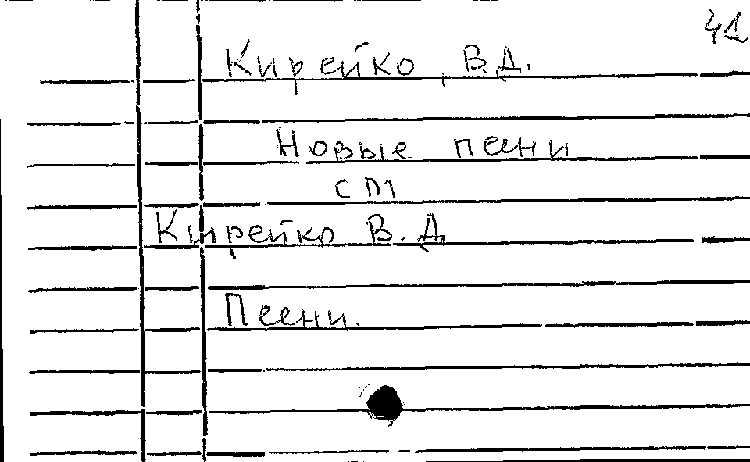 41
Кирейко, В.Д.
Новые песни
см
Кирейко В.Д.
Песни.